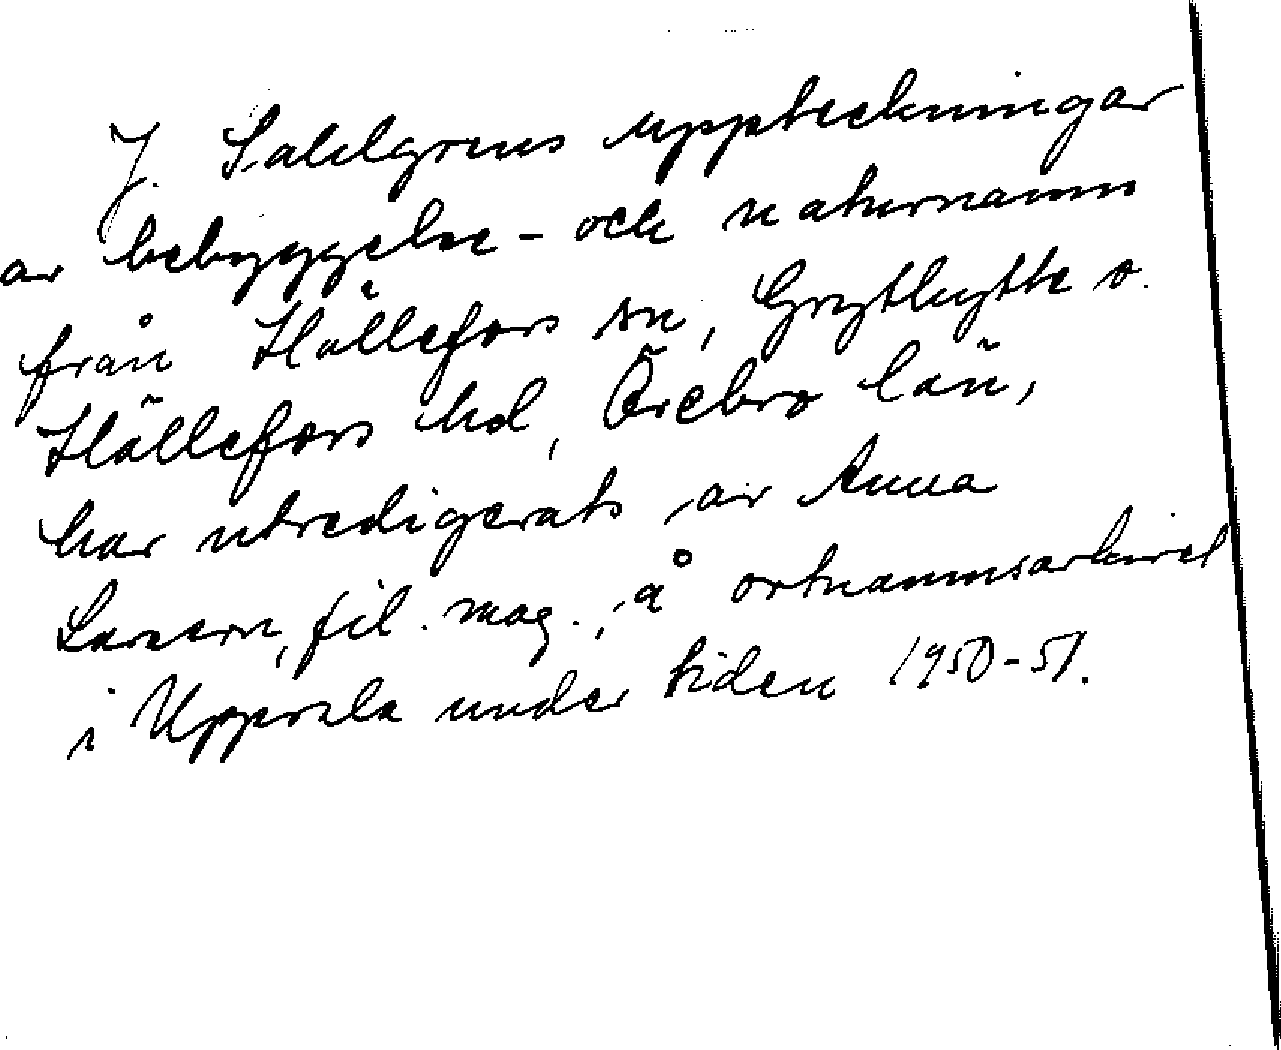 J. Sahlgrens uppteckningar
av bebyggelse- och naturnamn
från Hällefors sn, Grythytte o.
Hällefors hd, Örebro län,
har utredigerats av Anna
Larsson, fil. mag., å ortnamnsarkivet
i Uppsala under tiden 1950-51.